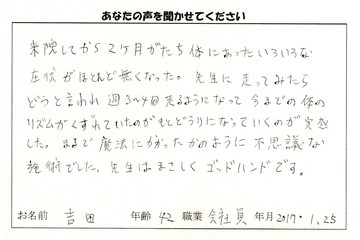 あなたの声を聞かせてください
来院してから2ヶ月がたち体にあったいろいろな
症状がほとんど無くなった。先生に走ってみたら
どうと言われ週3〜4回走るようになって今までの体の
リズムがくずれていたのがもとどうりになっていくのが実感
した。まるで魔法にかかったかのように不思議な
施術でした。先生はまさしくゴッドハンドです。
お名前 吉田 年齢 42 職業 会社員 年月 2017・1.25